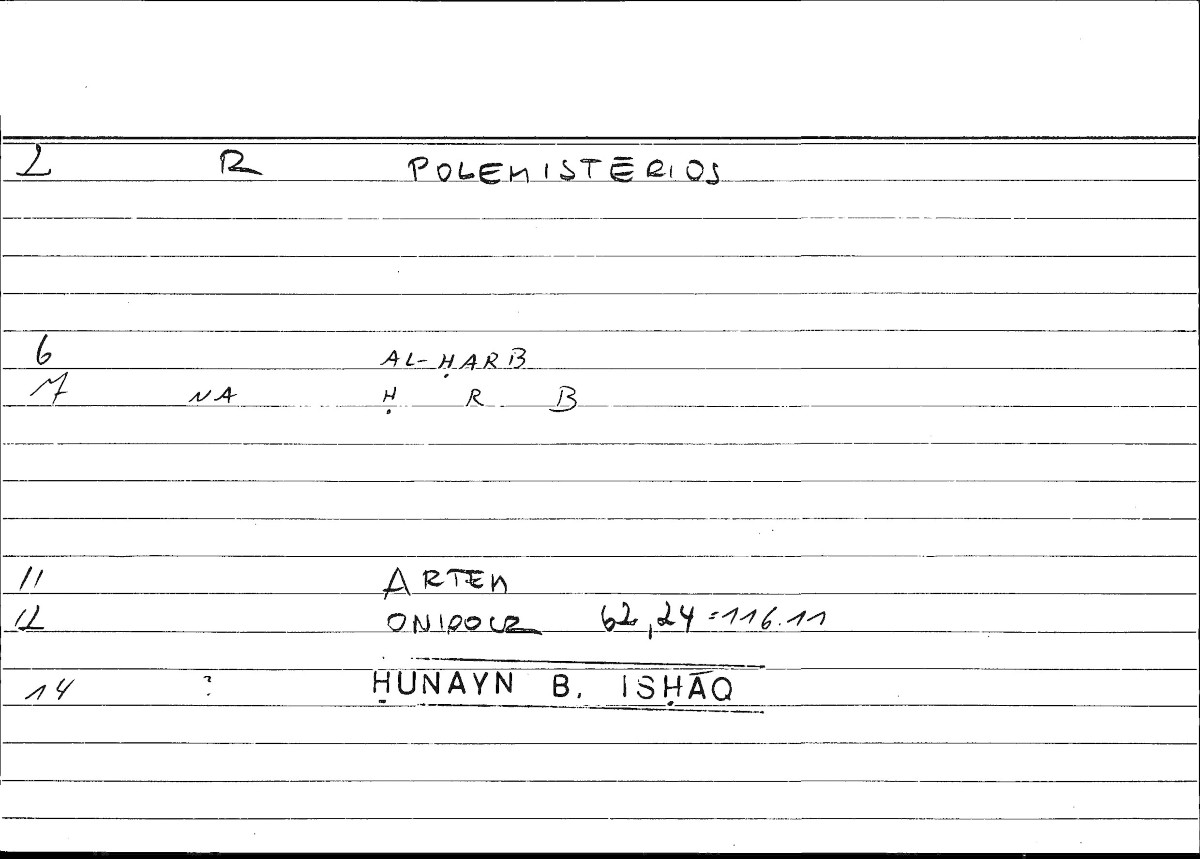 2 R POLEMISTĒRIOS
6 AL-ḤARB
7 NA Ḥ R B
11 ARTEM
12 ONIDOCR 62,24 = 116.11
14 ? ḤUNAYN B. ISḤĀQ